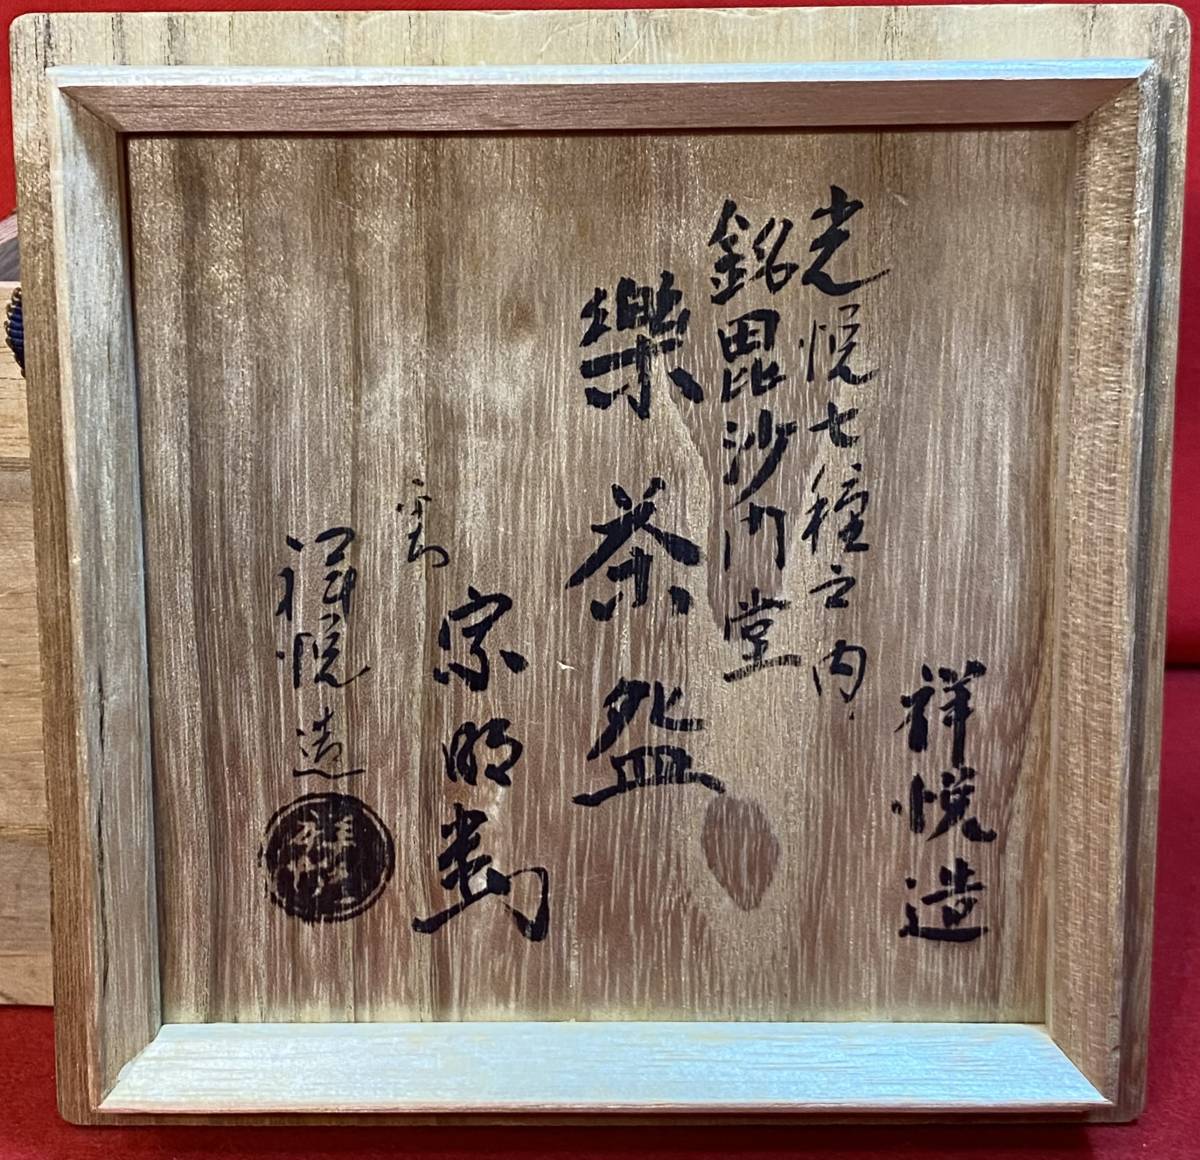 祥悦造
光悦七種之内
銘毘沙門堂
樂茶盌
宗明
祥悦造